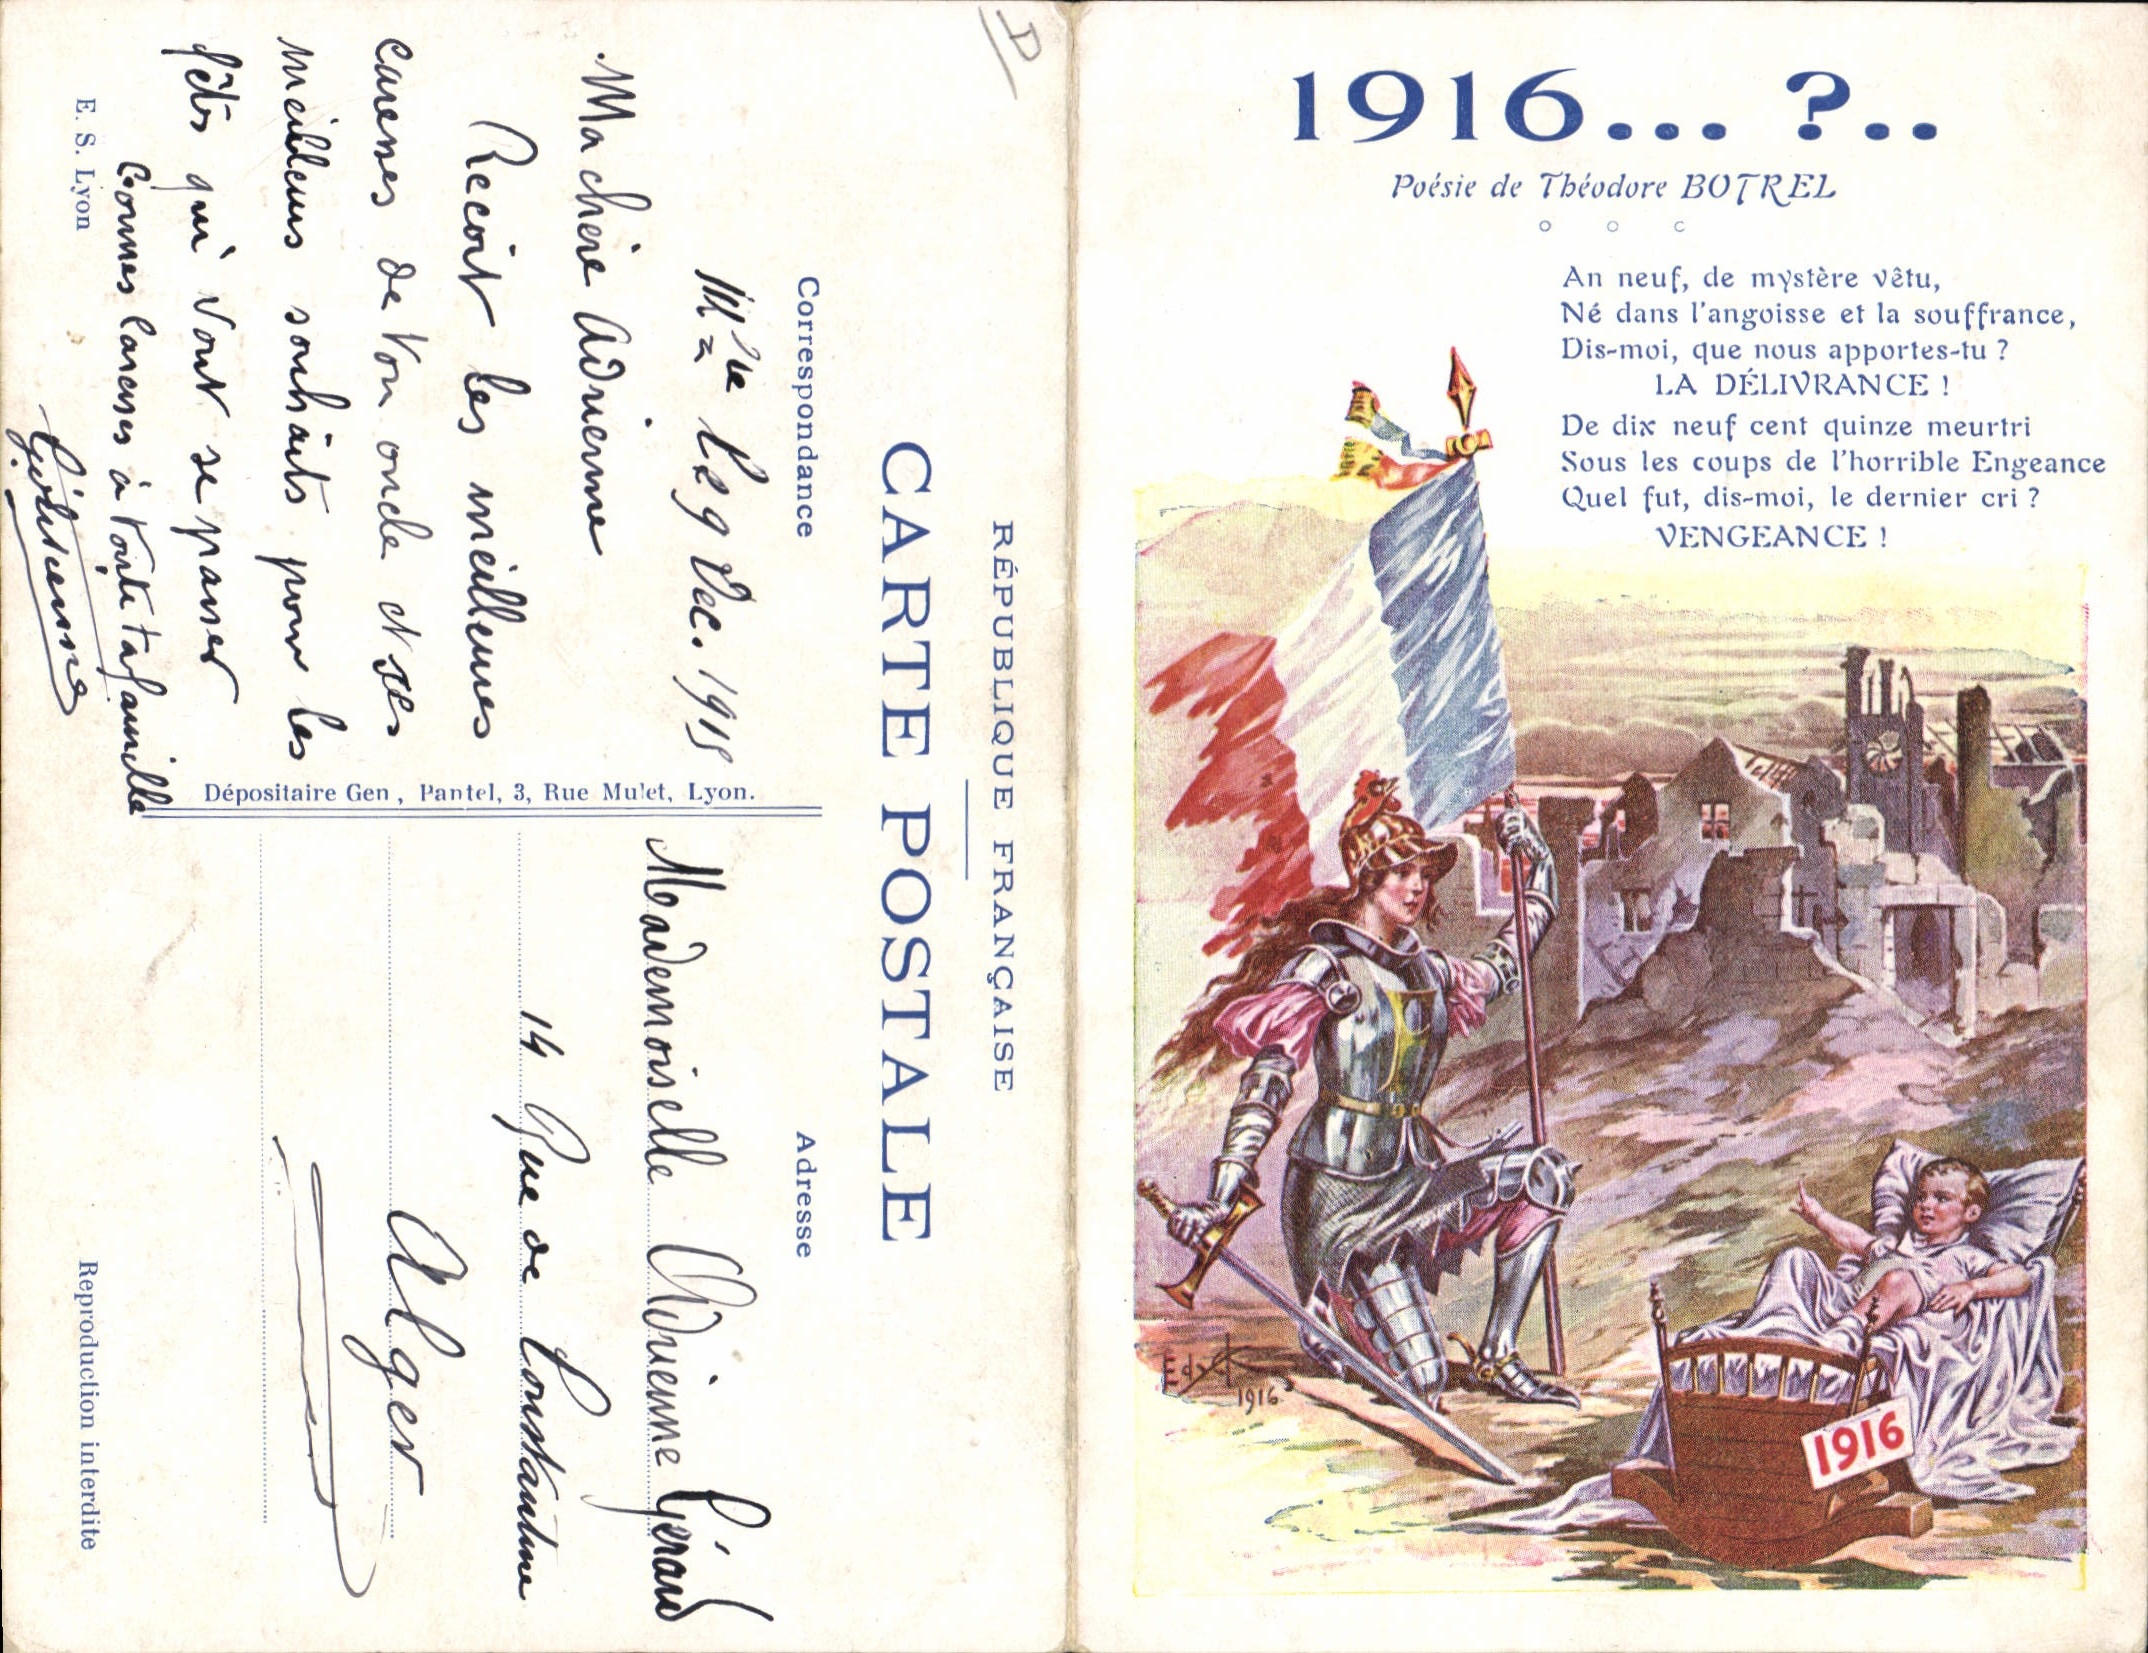 RÉPUBLIQUE FRANÇAISE
CARTE POSTALE
Correspondance
Adresse
le 9 Dec. 1915
Ma chère Adrienne
Recoit les meilleures
caresses de ton oncle et ses
meilleurs souhaits pour les
fêtes qui vont se passer
Bonnes Caresses à toute ta famille
E. S. Lyon
Dépositaire Gen, Pantel, 3, Rue Mulet, Lyon.
Mademoiselle Adrienne Gérard
14 Rue de Constantine
Alger
Reproduction interdite
D
1916... ?..
Poésie de Théodore BOTREL
An neuf, de mystère vêtu,
Né dans l'angoisse et la souffrance,
Dis-moi, que nous apportes-tu ?
LA DÉLIVRANCE !
De dix neuf cent quinze meurtri
Sous les coups de l'horrible Engeance
Quel fut, dis-moi, le dernier cri ?
VENGEANCE !
Edyck
1916
1916